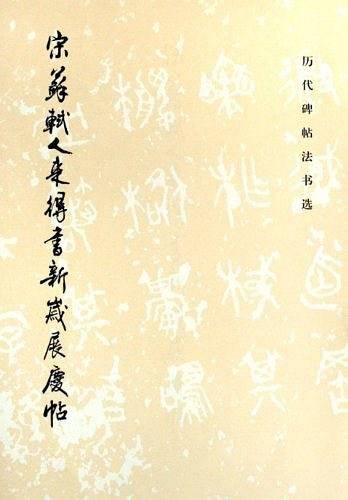 历代碑帖法书选
宋蘇軾人来得書新歳展慶帖